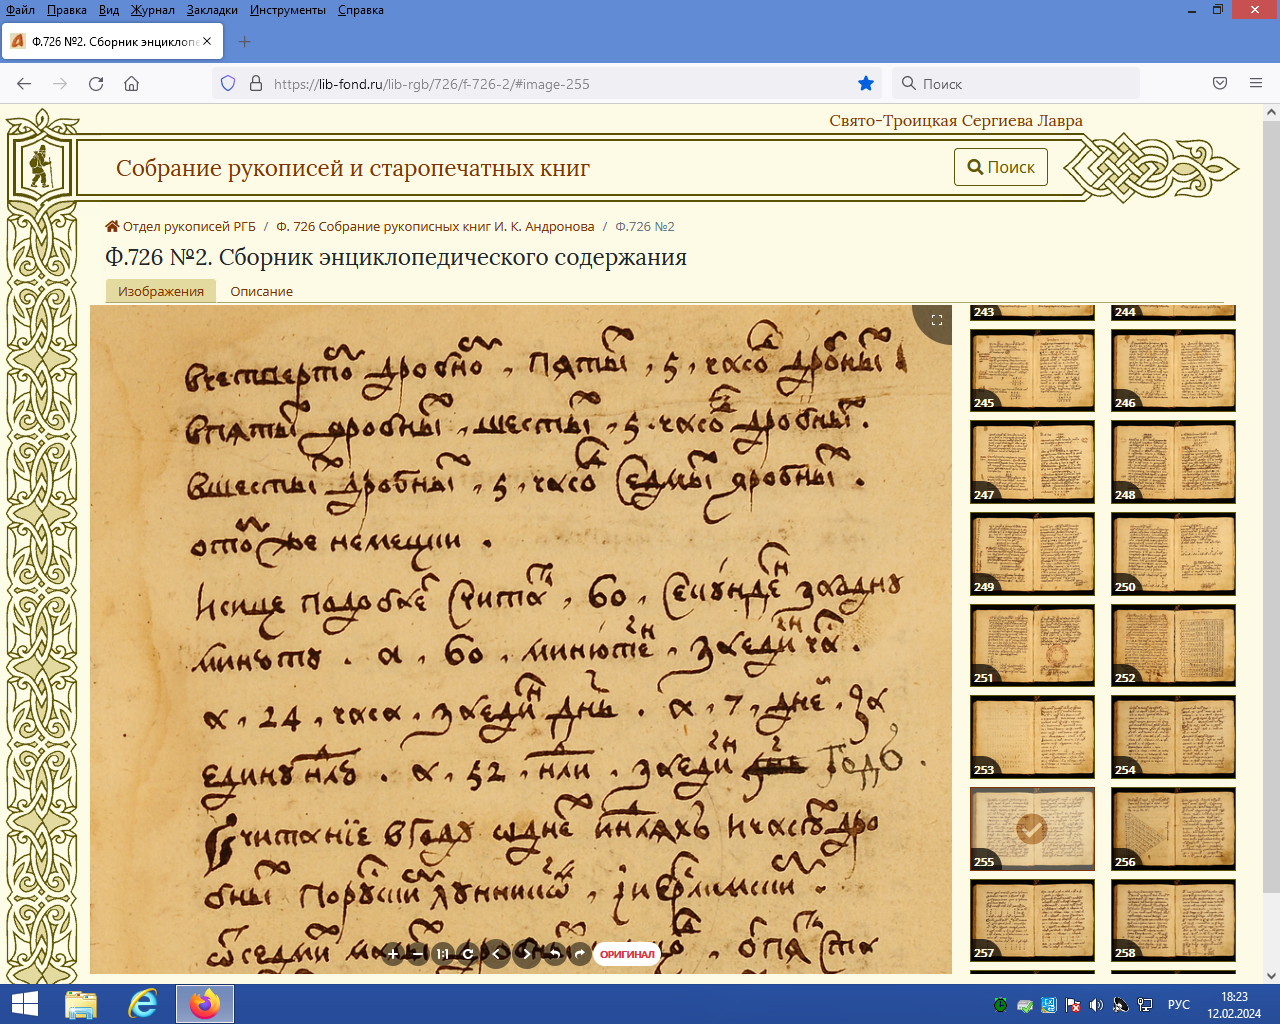 Файл Правка Вид Журнал Закладки Инструменты Справка
Ф.726 №2. Сборник энциклопе
https://lib-fond.ru/lib-rgb/726/f-726-2/#image-255
Поиск
Свято-Троицкая Сергиева Лавра
Собрание рукописей и старопечатных книг
Поиск
Отдел рукописей РГБ / Ф. 726 Собрание рукописных книг И. К. Андронова / Ф.726 №2
Ф.726 №2. Сборник энциклопедического содержания
Изображения Описание
вчетверто дробно, пяты, 5, часо дробны
впяты дробны, шесты, 5. часо дробны.
вшесты дробны, 5, часо седмы дробны.
немецки.
Исице подробне счита, 60, секунде заодну
минуту. а, 60, минюте, заедин ча.
а, 24, часа, заедин днь. а, 7, дне, за
едину нлю. а, 52, нли, заедин годъ.
Считание вгоду
243 244
245 246
247 248
249 250
251 252
253 254
255 256
257 258
1:1
ОРИГИНАЛ
РУС
18:23
12.02.2024